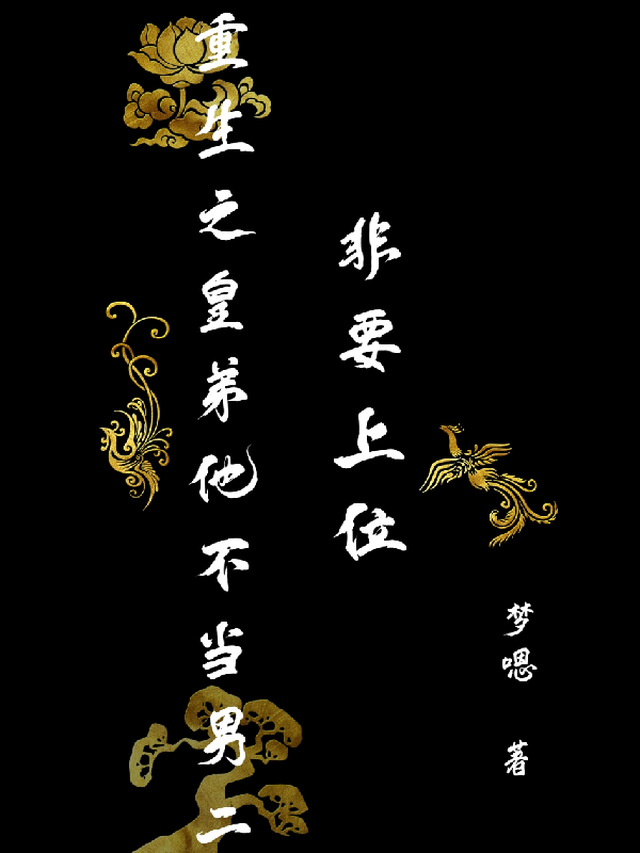 重生之皇弟他不当男二
非要上位
梦嗯 著